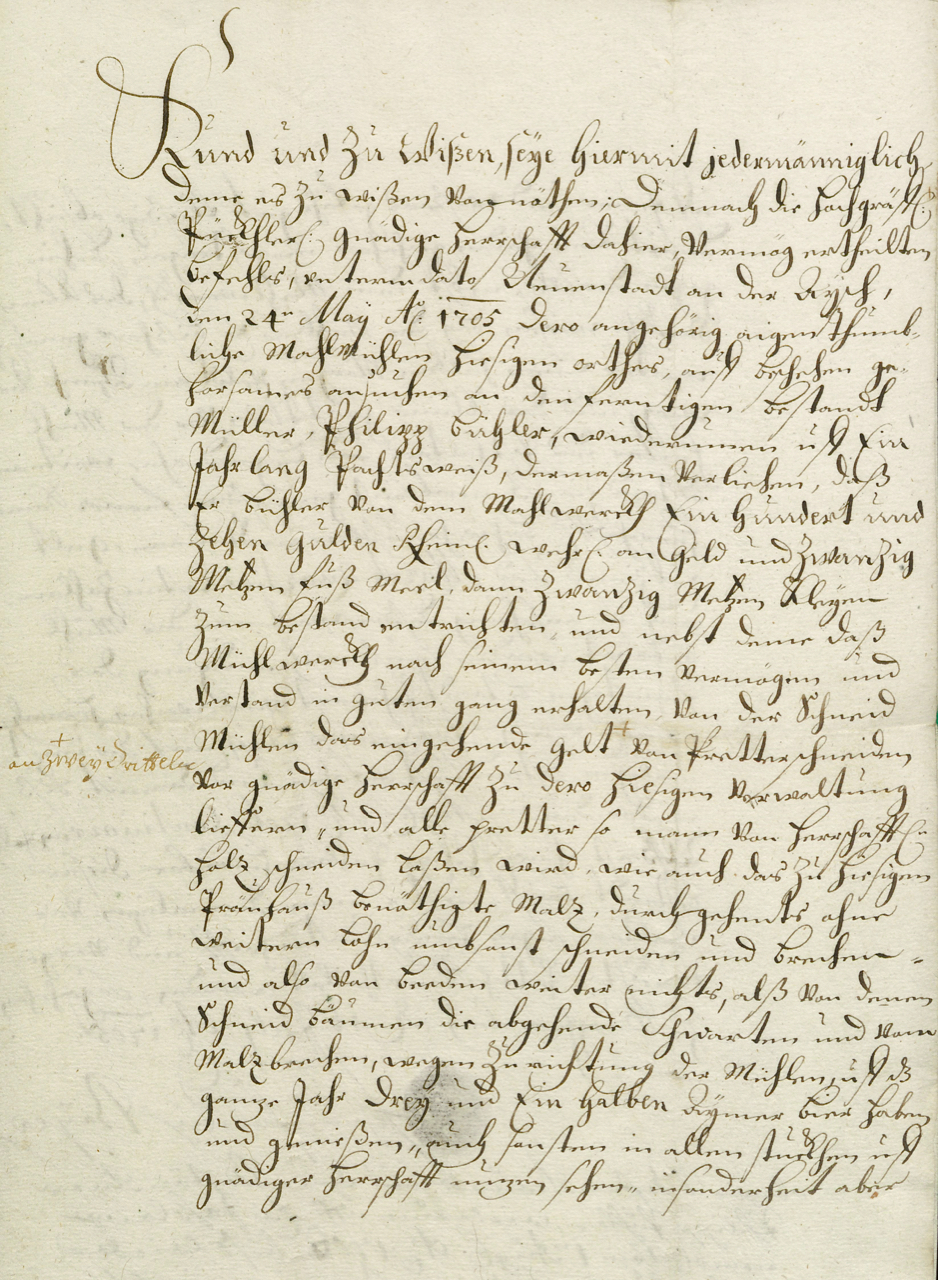 Kund und Zu Wißen, seÿe hiermit jedermänniglich
deme es zu wißen vonnöthen; Demnach die hochgräffl:
Pückhler: gnädige herrschafft dahier, Vermög ertheilten
befehls, unterm dato Neuenstadt an der Aÿsch,
den 24n Maÿ Ao: 1705 dero angehörig aigenthumb-
liche Mahlmühlen hiesigen orthes, auff beschehen ge-
horsames ansuchen an den ferntigen bestandt
Müller, Philipp bühler, wiederumen uff Ein
Jahr lang Pachtsweiß, dermaßen Verliehen, daß
Er bühler von dem Mahlwerckh Ein hundert und
Zehen gulden Rheinl: wehr: an geld und Zwanzig
Metzen fuß Meel, dann Zwanzig Metzen Kleÿen
zum bestand entrichten, und nebst deme daß
Mühlwerckh nach seinem besten vermögen und
verstand in guten gang erhalten, von der Schneid
Mühlen das eingehende gelt + von Pretterschneiden
+
an Zweÿ Drittelen
vor gnädige herrschafft zu dero hiesigen verwaltung
lieffern, und alle pretter so mann von herrschafftl:
holz schneiden laßen wird, wie auch das zu hiesigen
Präuhauß benöthigte Malz, durchgehents ohne
weitern lohn umbsonst schneiden und brechen,
und also von beeden weiter nichts, alß von denen
Schneid bäumen die abgehende Schwarten und vom
Malzbrechen, wegen Zurichtung der Mühlen, uff dz
ganze Jahr Dreÿ und Ein halben Aÿmer bier haben
und genießen, auch sonsten in allen stuckhen uff
gnädiger herrschafft nuzen sehen, insonderheit aber